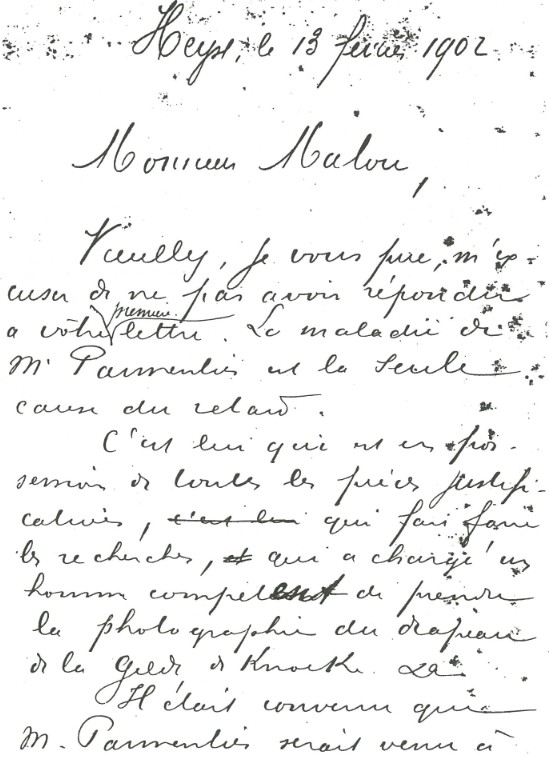 Heyst, le 13 février 1902
Monsieur Malou,
Veuilly, je vous prie, m'ex-
cuser de ne pas avoir répondu
a votre première lettre. La maladie de
Mr Parmentier est la seule
cause du retard.
C'est lui qui est en pos-
session de toutes les pièces justifi-
catives, c'est lui qui fait faire
les recherches, et qui a chargé un
homme compétent de prendre
la photographie du drapeau
de la Gilde de Knocke.
Il était convenu que
M. Parmentier serait venu à